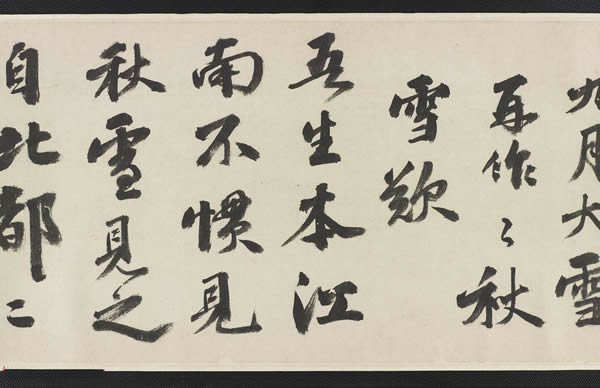 九月大雪
再作〻秋
雪歎
吾生本江
南不慣見
秋雪見之
自北都二